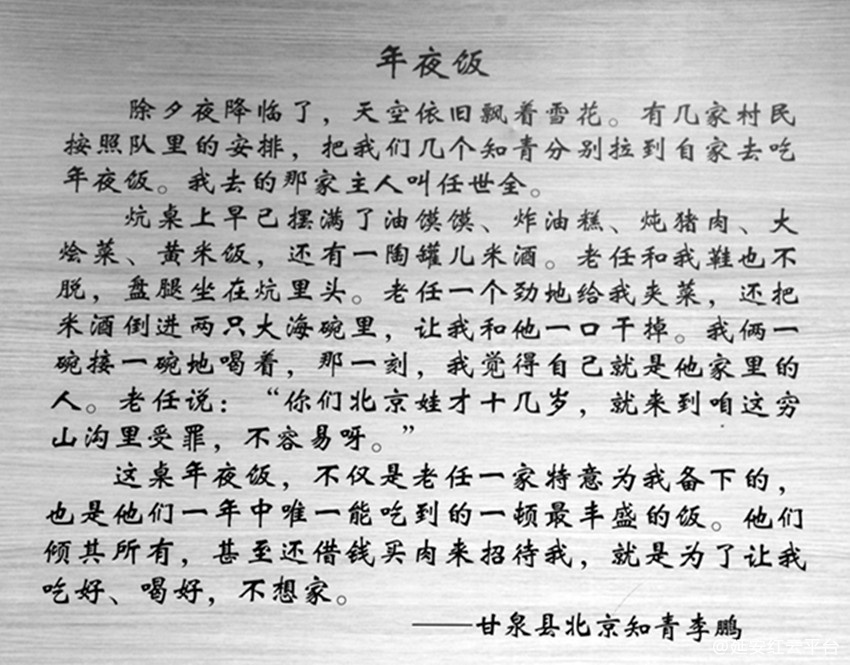 年夜饭
除夕夜降临了，天空依旧飘着雪花。有几家村民
按照队里的安排，把我们几个知青分别拉到自家去吃
年夜饭。我去的那家主人叫任世全。
炕桌上早已摆满了油馍馍、炸油糕、炖猪肉、大
烩菜、黄米饭，还有一陶罐儿米酒。老任和我鞋也不
脱，盘腿坐在炕里头。老任一个劲地给我夹菜，还把
米酒倒进两只大海碗里，让我和他一口干掉。我俩一
碗接一碗地喝着，那一刻，我觉得自己就是他家里的
人。老任说：“你们北京娃才十几岁，就来到咱这穷
山沟里受罪，不容易呀。”
这桌年夜饭，不仅是老任一家特意为我备下的，
也是他们一年中唯一能吃到的一顿最丰盛的饭。他们
倾其所有，甚至还借钱买肉来招待我，就是为了让我
吃好、喝好，不想家。
——甘泉县北京知青李鹏
@延安红云平台